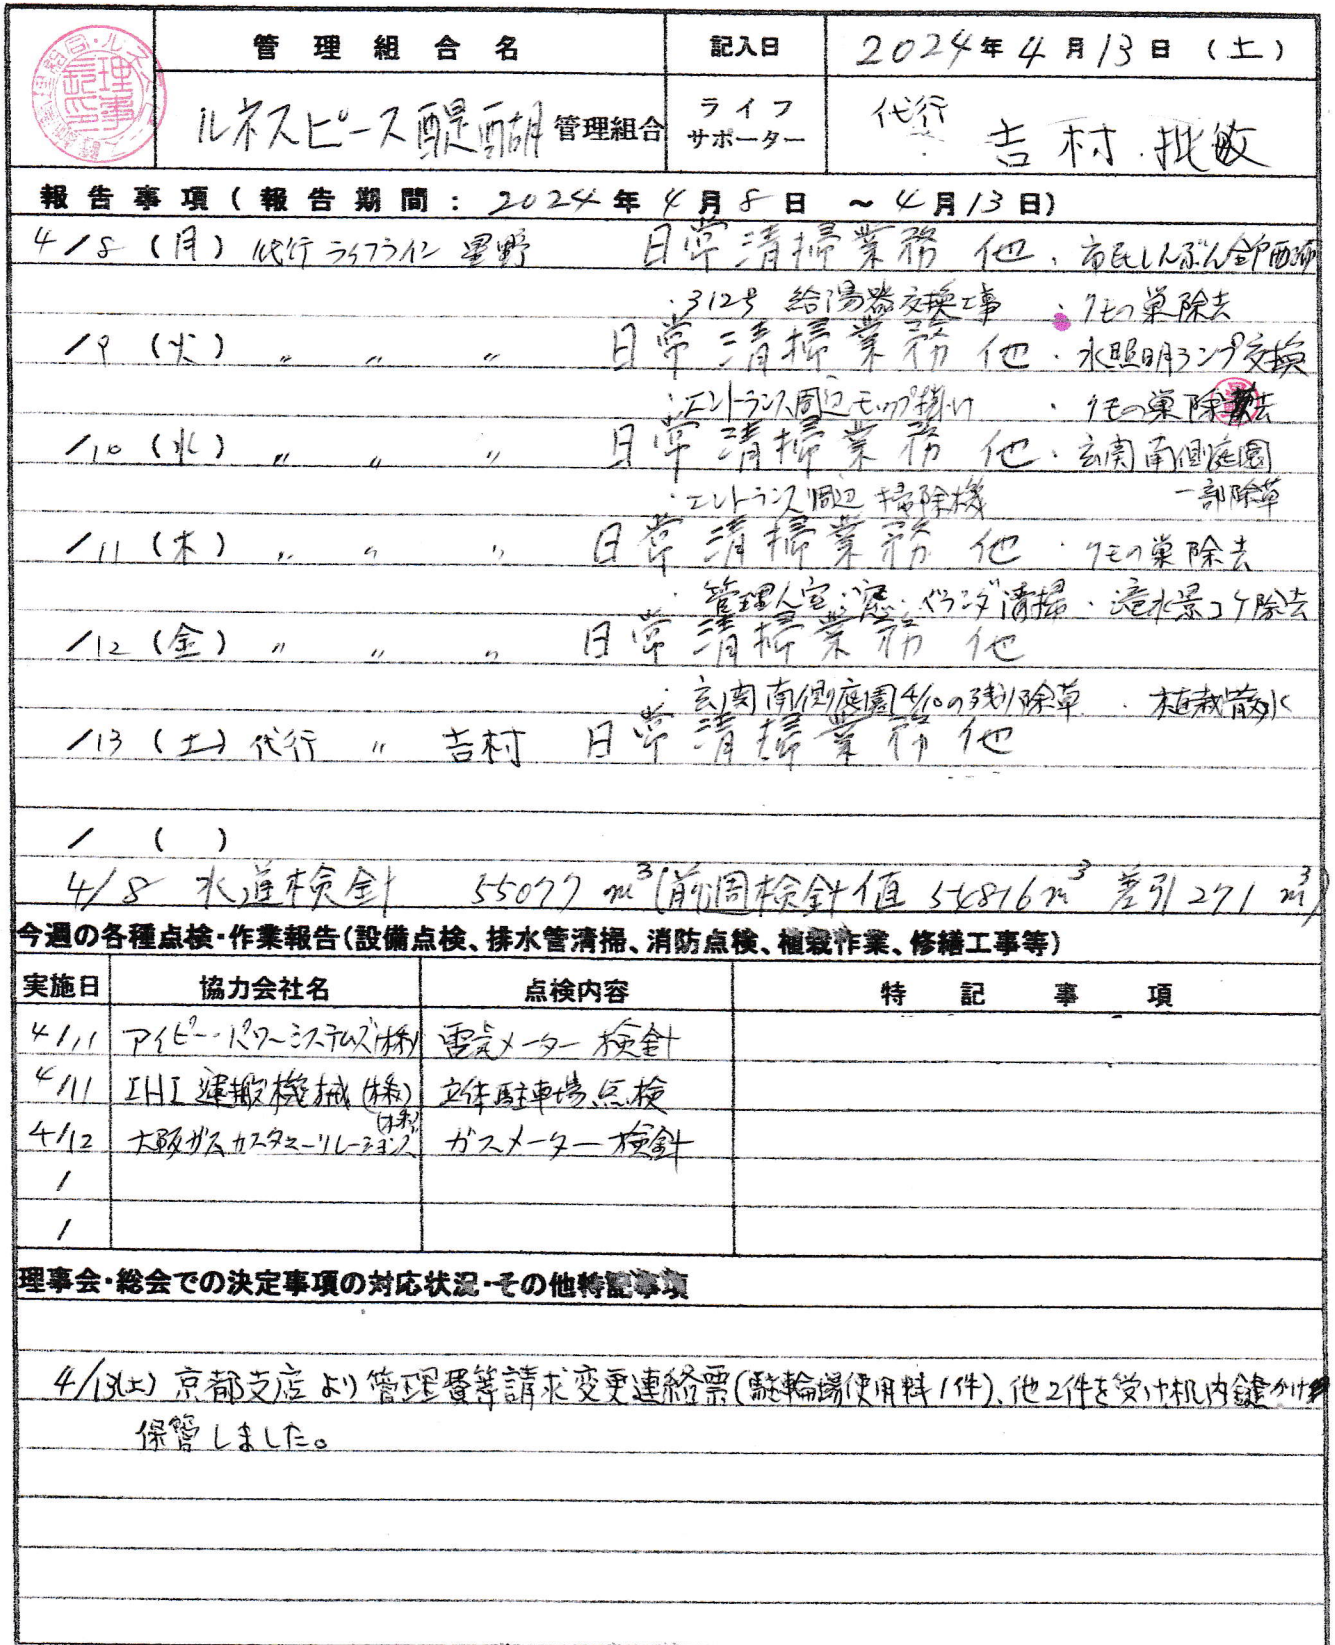 管理組合名 記入日 2024年4月13日(土)
ルネスピース醍醐管理組合 ライフサポーター 代行 吉村
報告事項(報告期間:2024年4月8日 ~4月13日)
4/8(月)代行 ライフライン 星野 日常清掃業務 他 ・市民しんぶん全戸配布
・312号 給湯器交換工事 ・クモの巣除去
/9(火)〃 〃 〃 日常清掃業務 他 ・水照明ランプ交換
・エントランス周辺モップ掛け ・クモの巣除去
/10(水)〃 〃 〃 日常清掃業務 他 ・玄関南側庭園
・エントランス周辺 掃除機 一部除草
/11(木)〃 〃 〃 日常清掃業務 他 ・クモの巣除去
・管理人室・窓・ベランダ清掃 ・滝水景コケ除去
/12(金)〃 〃 〃 日常清掃業務 他
・玄関南側庭園4/10の残り除草 ・植栽散水
/13(土)代行 〃 吉村 日常清掃業務 他
/ ( )
4/8 水道検針 55077m³(前週検針値 54816m³ 差引271m³)
今週の各種点検・作業報告(設備点検、排水管清掃、消防点検、植栽作業、修繕工事等)
実施日 協力会社名 点検内容 特記事項
4/11 アイピー・パワーシステムズ(株) 電気メーター検針
4/11 IHI運搬機械(株) 立体駐車場点検
4/12 大阪ガスカスタマーリレーションズ(株) ガスメーター検針
/
/
理事会・総会での決定事項の対応状況・その他特記事項
4/13(土)京都支店より管理費等請求変更連絡票(駐輪場使用料1件)、他2件を受け机内鍵かけ
保管しました。